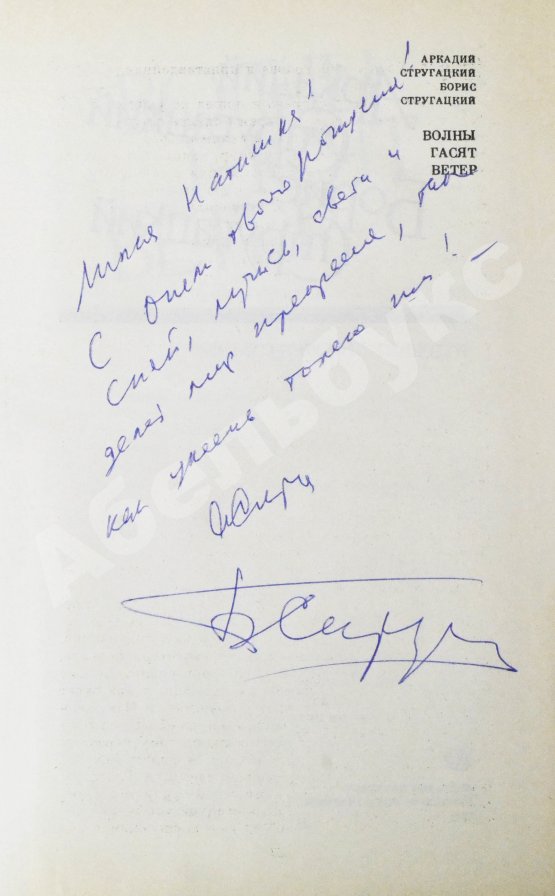 АРКАДИЙ
СТРУГАЦКИЙ
БОРИС
СТРУГАЦКИЙ
ВОЛНЫ
ГАСЯТ
ВЕТЕР
Милая Наташка!
С Днем твоего рождения!
Сияй, лучись, свети и
делай мир прекрасней, так
как умеешь только ты! –
Абельбукс